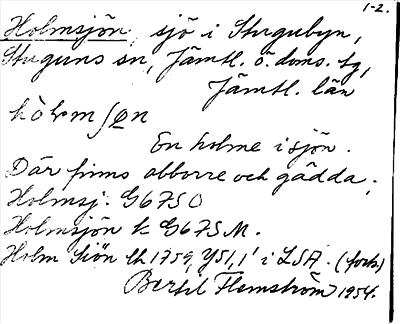 1-2.
Holmsjön, sjö i Stugubyn,
Stuguns sn, Jämtl. ö. doms. tg,
Jämtl. län
hòlmʃo̲n
En holme i sjön.
Där finns abborre och gädda.
Holmsj. G675 O
Holmsjön k G675 M.
Holm Siön lh 1759, Y51,1' i LSA. (forts)
Bertil Flemström 1954.